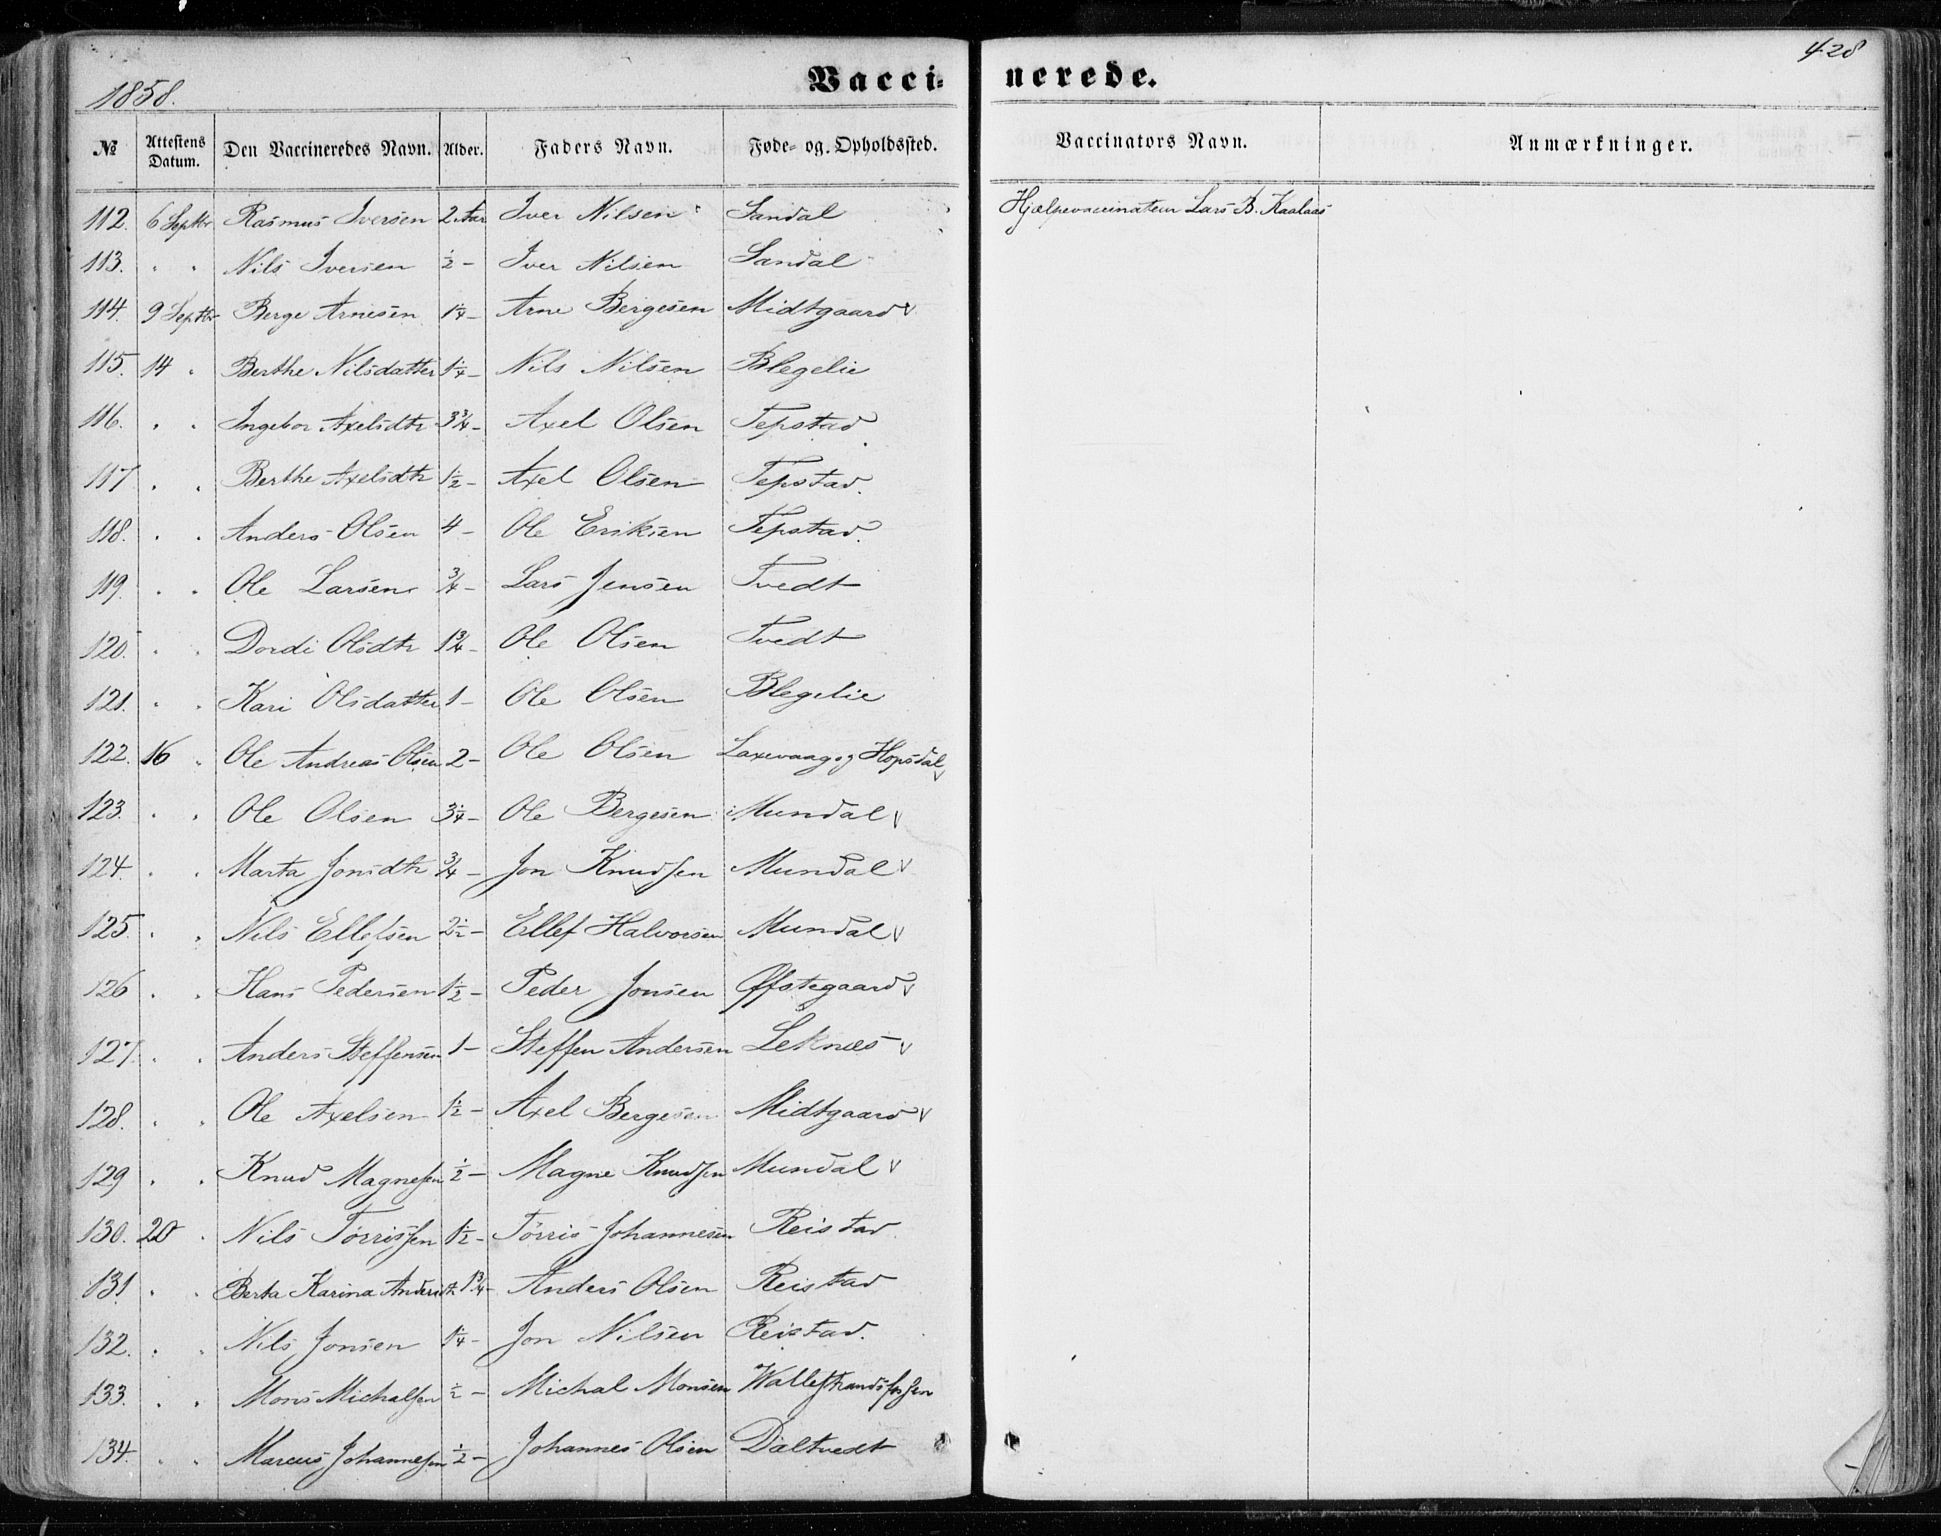 428
1858.
Vaccinerede.
№ Attestens Datum. Den Vaccineredes Navn. Alder. Faders Navn. Føde- og Opholdssted. Vaccinators Navn. Anmærkninger.
112. 6 Septbr Rasmus Iversen 2 Aar Iver Nilsen Sandal Hjælpevaccinateur Lars B. Kaalaas
113. " " Nils Iversen ½ - Iver Nilsen Sandal
114. 9 Septbr Berge Arnesen 1¼ - Arne Bergesen Midtgaard
115. 14 " Berthe Nilsdatter 1¼ - Nils Nilsen Blegelie
116. " " Ingebor Axelsdtr 3¾ - Axel Olsen Tepstad
117 " " Berthe Axelsdtr 1½ - Axel Olsen Tepstad.
118. " " Anders Olsen 4 - Ole Eriksen Tepstad.
119. " " Ole Larsen ¾ - Lars Jensen Tvedt
120. " " Dordi Olsdtr 1¾ - Ole Olsen Tvedt
121. " " Kari Olsdatter 1 - Ole Olsen Blegelie
122. 16 " Ole Andreas Olsen 2 - Ole Olsen Laxevaag og Hopsdal
123. " " Ole Olsen 3¼ - Ole Bergesen Mundal
124. " " Marta Jonsdtr ¾ - Jon Knudsen Mundal
125. " " Nils Ellefsen 2½ - Ellef Halvorsen Mundal
126 " " Hans Pedersen 1½ - Peder Jonsen Øfstegaard
127. " " Anders Steffensen 1 - Steffen Andersen Leknæs
128. " " Ole Axelsen 1½ - Axel Bergesen Midtgaard
129 " " Knud Magnesen ½ - Magne Knudsen Mundal
130. 20 " Nils Tørrissen 1½ - Tørris Johannesen Reistad
131. " " Berta Karina Andersdtr 1¾ - Anders Olsen Reistad
132. " " Nils Jonsen 1¼ - Jon Nilsen Reistad.
133. " " Mons Michalsen ½ - Michal Monsen Wallestrandsfossen
134. " " Marcus Johannesen ½ - Johannes Olsen Daltvedt